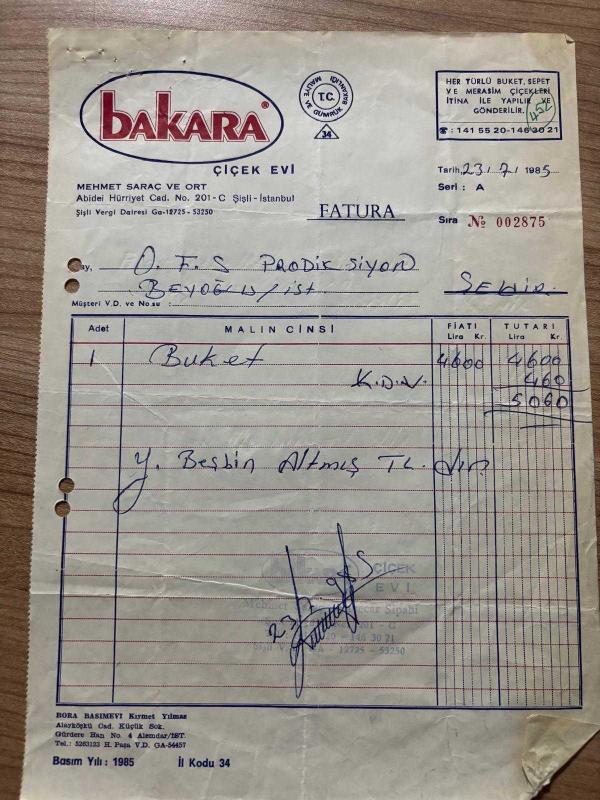 bakara®
ÇİÇEK EVİ
MALİYE VE GÜMRÜK BAKANLIĞI
T.C.
34
HER TÜRLÜ BUKET, SEPET
VE MERASİM ÇİÇEKLERİ
İTİNA İLE YAPILIR VE
GÖNDERİLİR.
452
☎ : 141 55 20-146 30 21
MEHMET SARAÇ VE ORT
Abidei Hürriyet Cad. No. 201-C Şişli-İstanbul
Şişli Vergi Dairesi Ga-12725 - 53250
FATURA
Tarih, 23 / 7 / 1985
Seri : A
Sıra № 002875
ay, O. F. S PRODİKSİYON
BEYOĞLU / İST.
Müşteri V.D. ve No.su :
Adet MALIN CİNSİ FİATI TUTARI
Lira Kr. Lira Kr.
1 Buket 4600 4600
K.D.V. 460
5060
Y. Beşbin Altmış TL. dır
bakara ÇİÇEK
EVİ
Mehmet Sipahi
201 - C
146 30 21
12725 - 53250
BORA BASIMEVİ Kıymet Yılmaz
Alayköşkü Cad. Küçük Sok.
Gürdere Han No. 4 Alemdar/İST.
Tel.: 5263123 H. Paşa V.D. GA-54457
Basım Yılı : 1985 İl Kodu 34